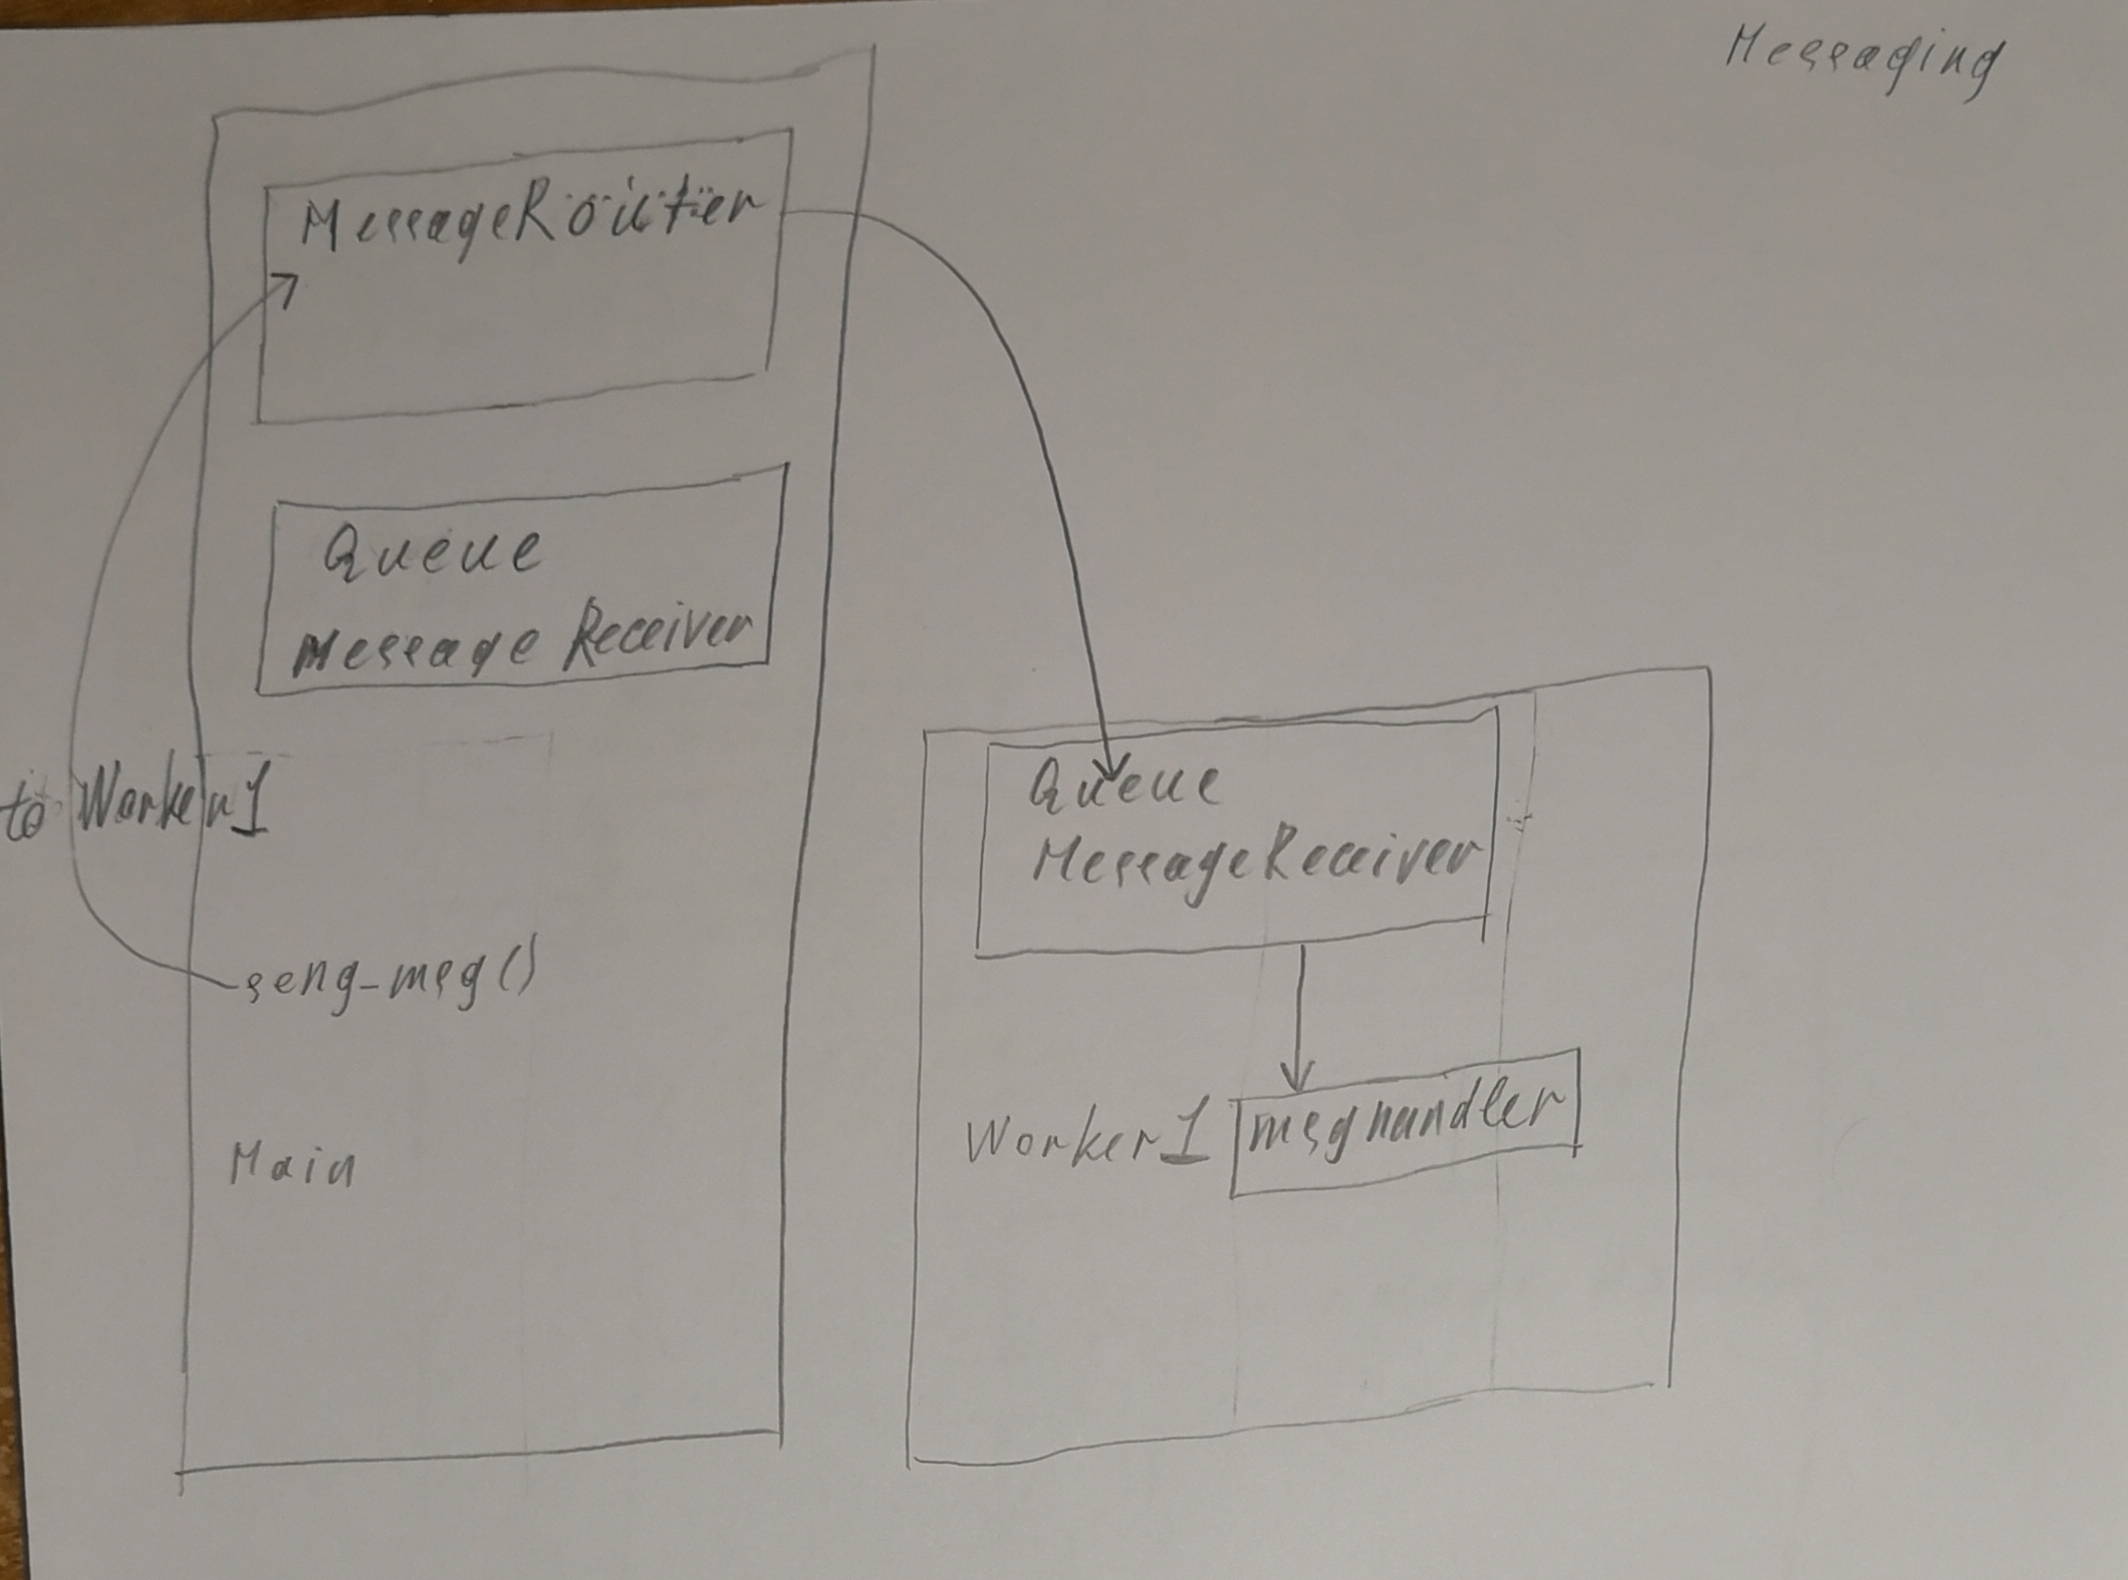 Messaging
MessageRouter
Queue
Message Receiver
to Worker1
seng_msg()
Main
Queue
MessageReceiver
Worker1
msghandler